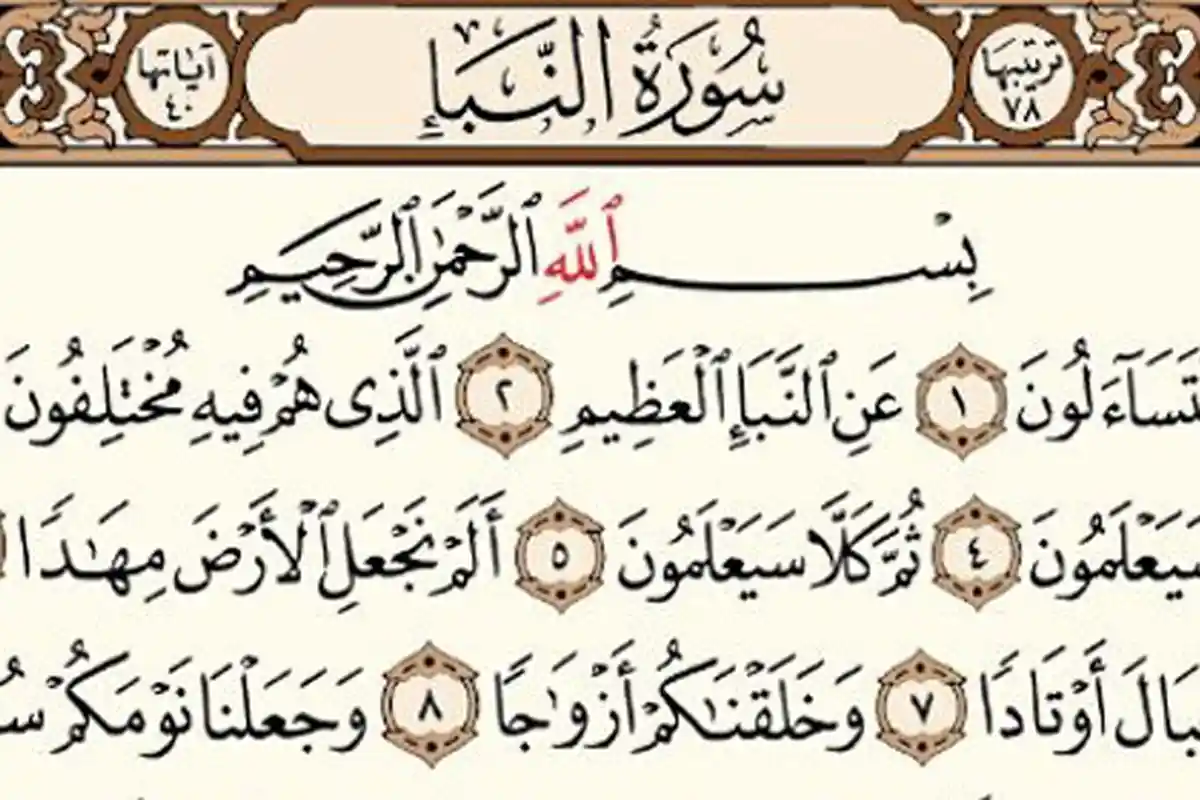 ترتيبها ٧٨
سُورَةُ النَّبَإِ
آياتها ٤٠
بِسْمِ ٱللَّهِ ٱلرَّحْمَٰنِ ٱلرَّحِيمِ
تَسَآءَلُونَ ١ عَنِ ٱلنَّبَإِ ٱلْعَظِيمِ ٢ ٱلَّذِى هُمْ فِيهِ مُخْتَلِفُونَ
سَيَعْلَمُونَ ٤ ثُمَّ كَلَّا سَيَعْلَمُونَ ٥ أَلَمْ نَجْعَلِ ٱلْأَرْضَ مِهَٰدًا
بَالَ أَوْتَادًا ٧ وَخَلَقْنَٰكُمْ أَزْوَٰجًا ٨ وَجَعَلْنَا نَوْمَكُمْ سُ